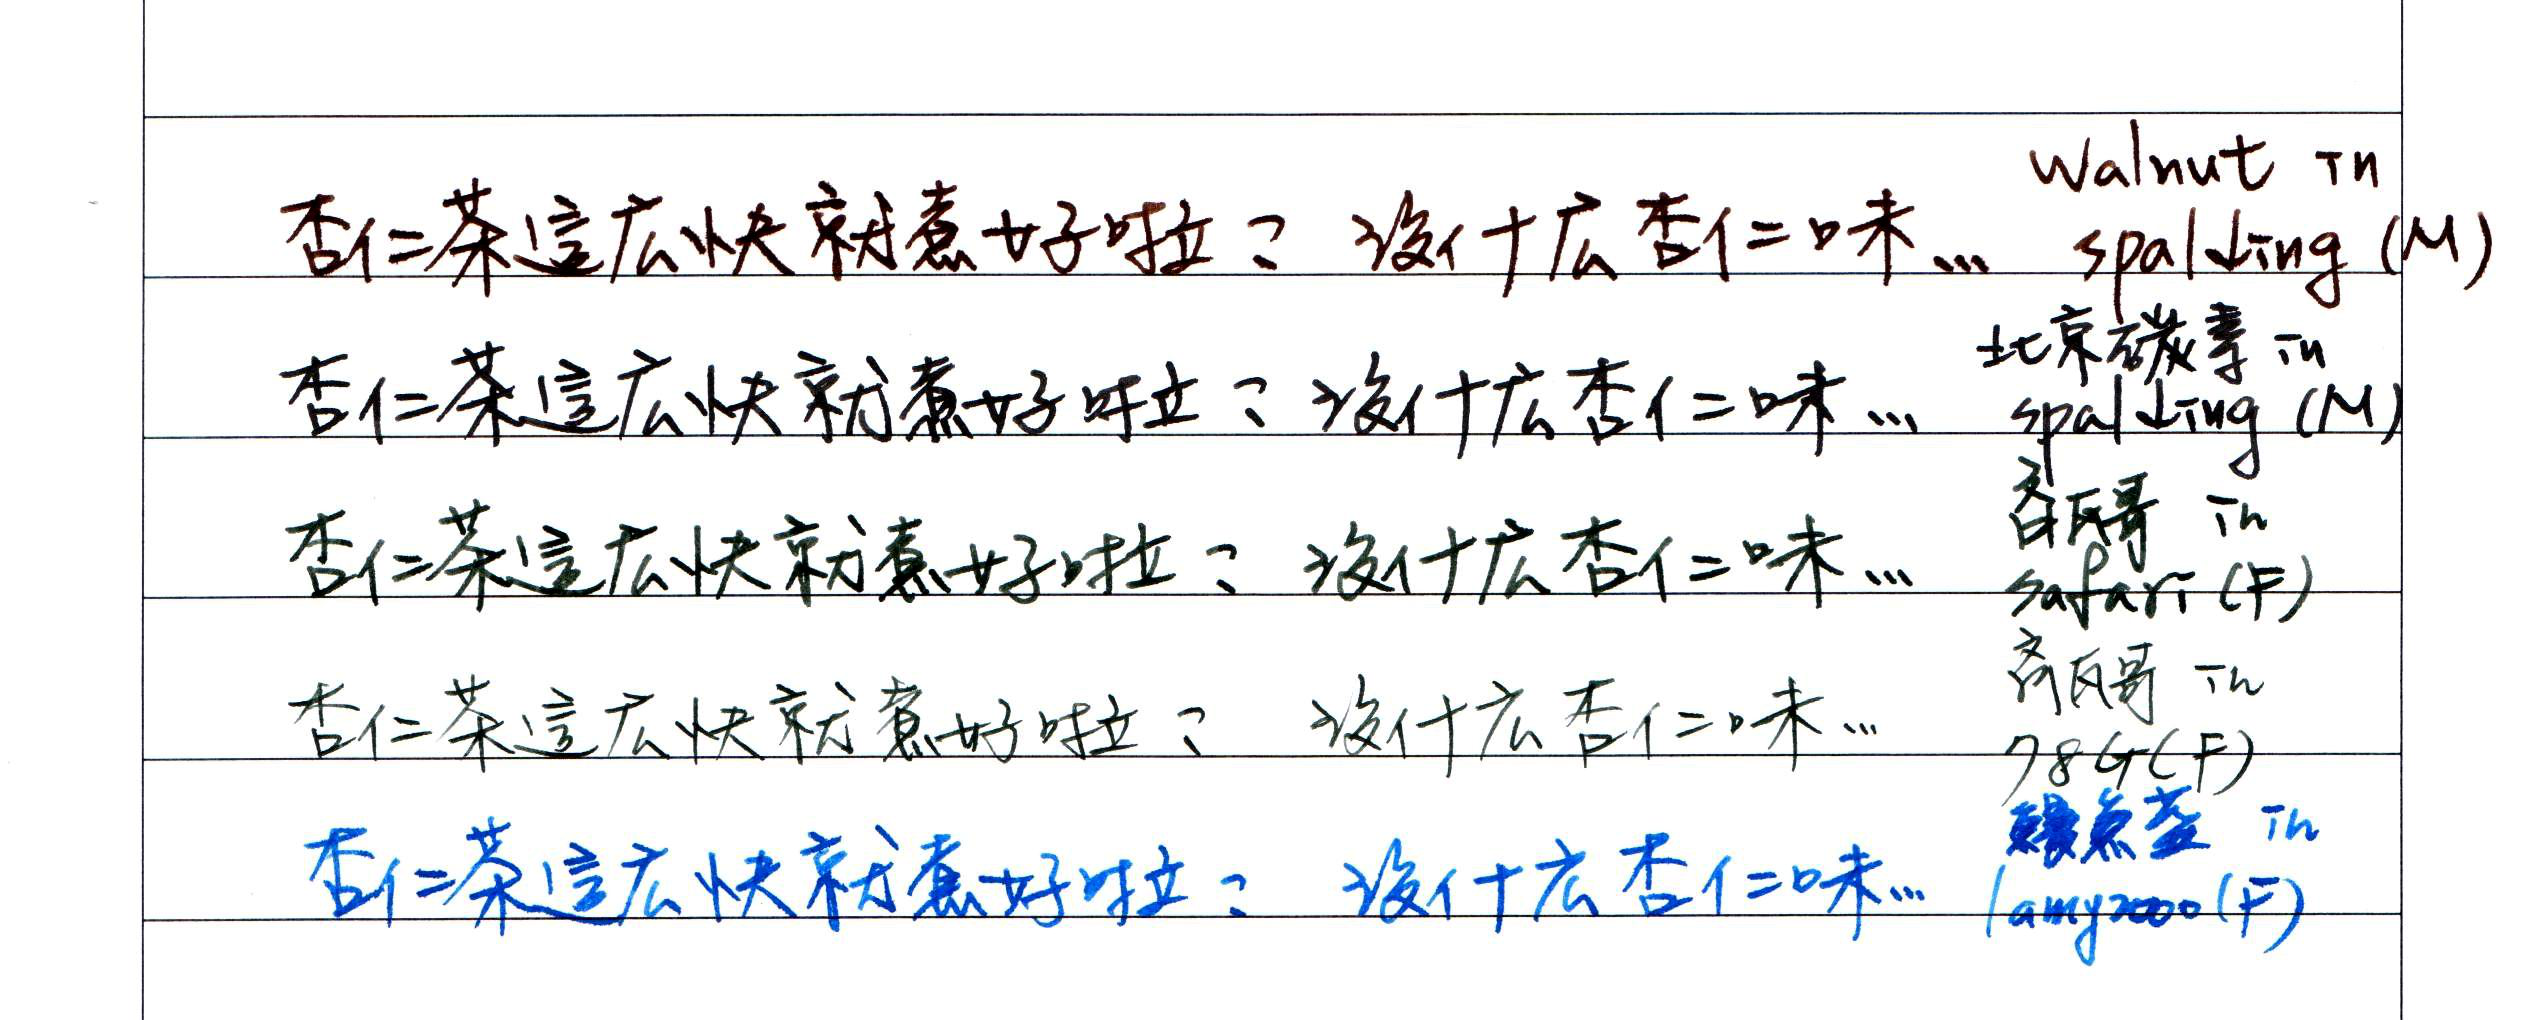 杏仁茶這広快就煮好啦？ 没什広杏仁味… Walnut in spalding (M)
杏仁茶這広快就煮好啦？ 没什広杏仁味… 北京碳素 in spalding (M)
杏仁茶這広快就煮好啦？ 没什広杏仁味… 齐瓦哥 in safari (F)
杏仁茶這広快就煮好啦？ 没什広杏仁味… 齐瓦哥 in 78G (F)
杏仁茶這広快就煮好啦？ 没什広杏仁味… in lamy2000 (F)